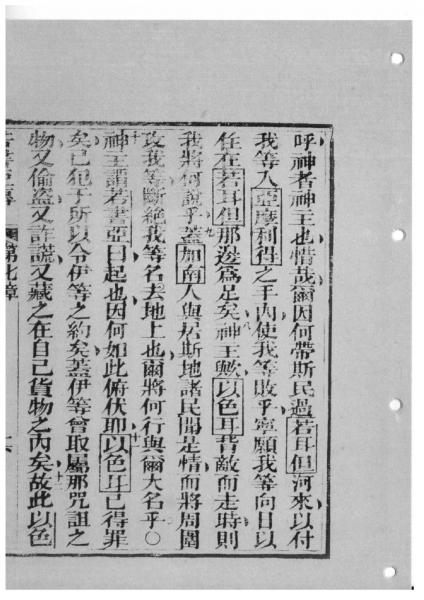 呼神者神王也惜哉爾因何帶斯民過若耳但河來以付
我等入亞摩利得之手內使我等敗乎寧願我等向日以
任在若耳但那邊爲足矣八神王歟以色耳背敵而走時則
我將何說乎九蓋加南人與居斯地諸民聞是情而將周圍
攻我等斷絕我等名去地上也爾將何行與爾大名乎○
十神王謂若書亞曰起也因何如此俯伏耶十一以色耳已得罪
矣已犯于所以令伊等之約矣蓋伊等曾取屬那咒詛之
物又偷盜又詐謊又藏之在自己貨物之內矣十二故此以色